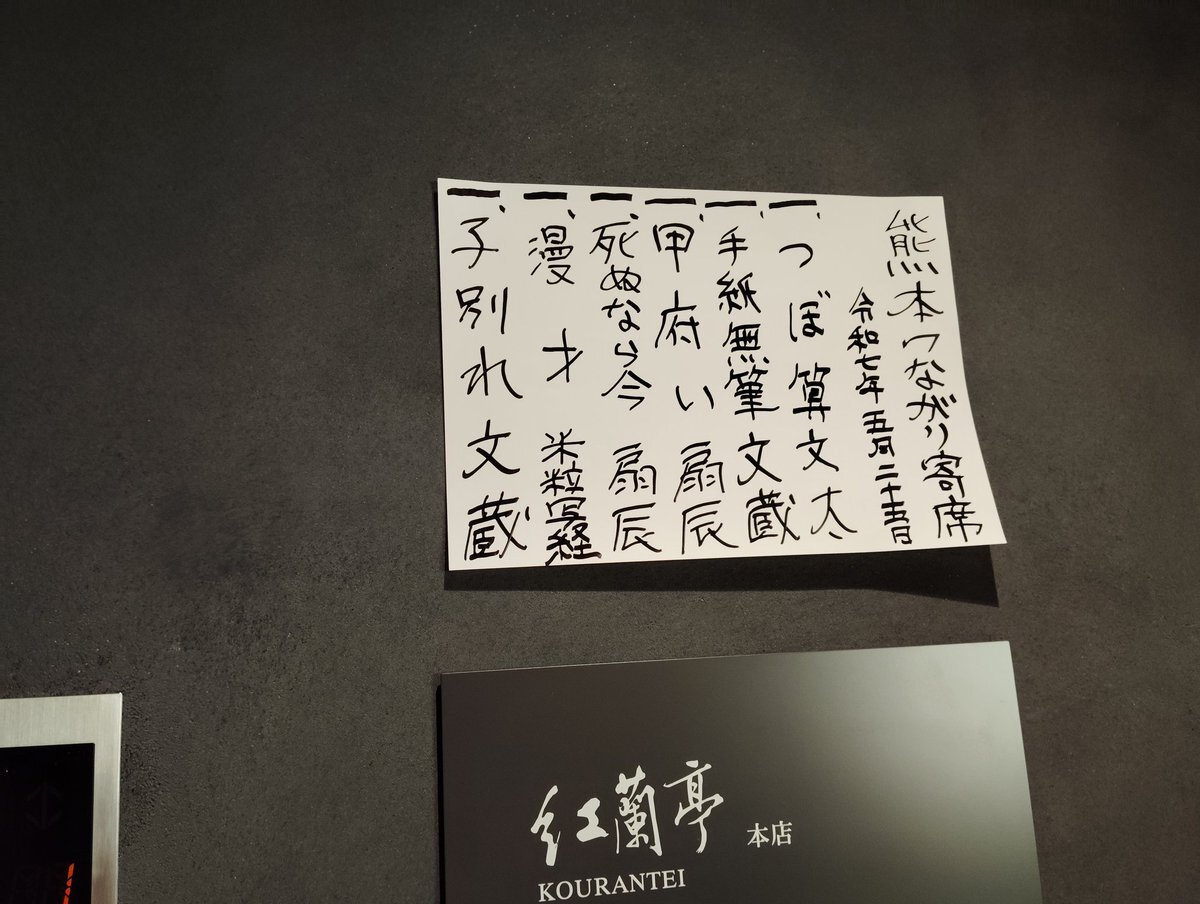 熊本つながり寄席
令和七年五月二十五日
一、つぼ算 文太
一、手紙無筆 文蔵
一、甲府い 扇辰
一、死ぬなら今 扇辰
一、漫才 米粒写経
一、子別れ 文蔵
紅蘭亭 本店
KOURANTEI